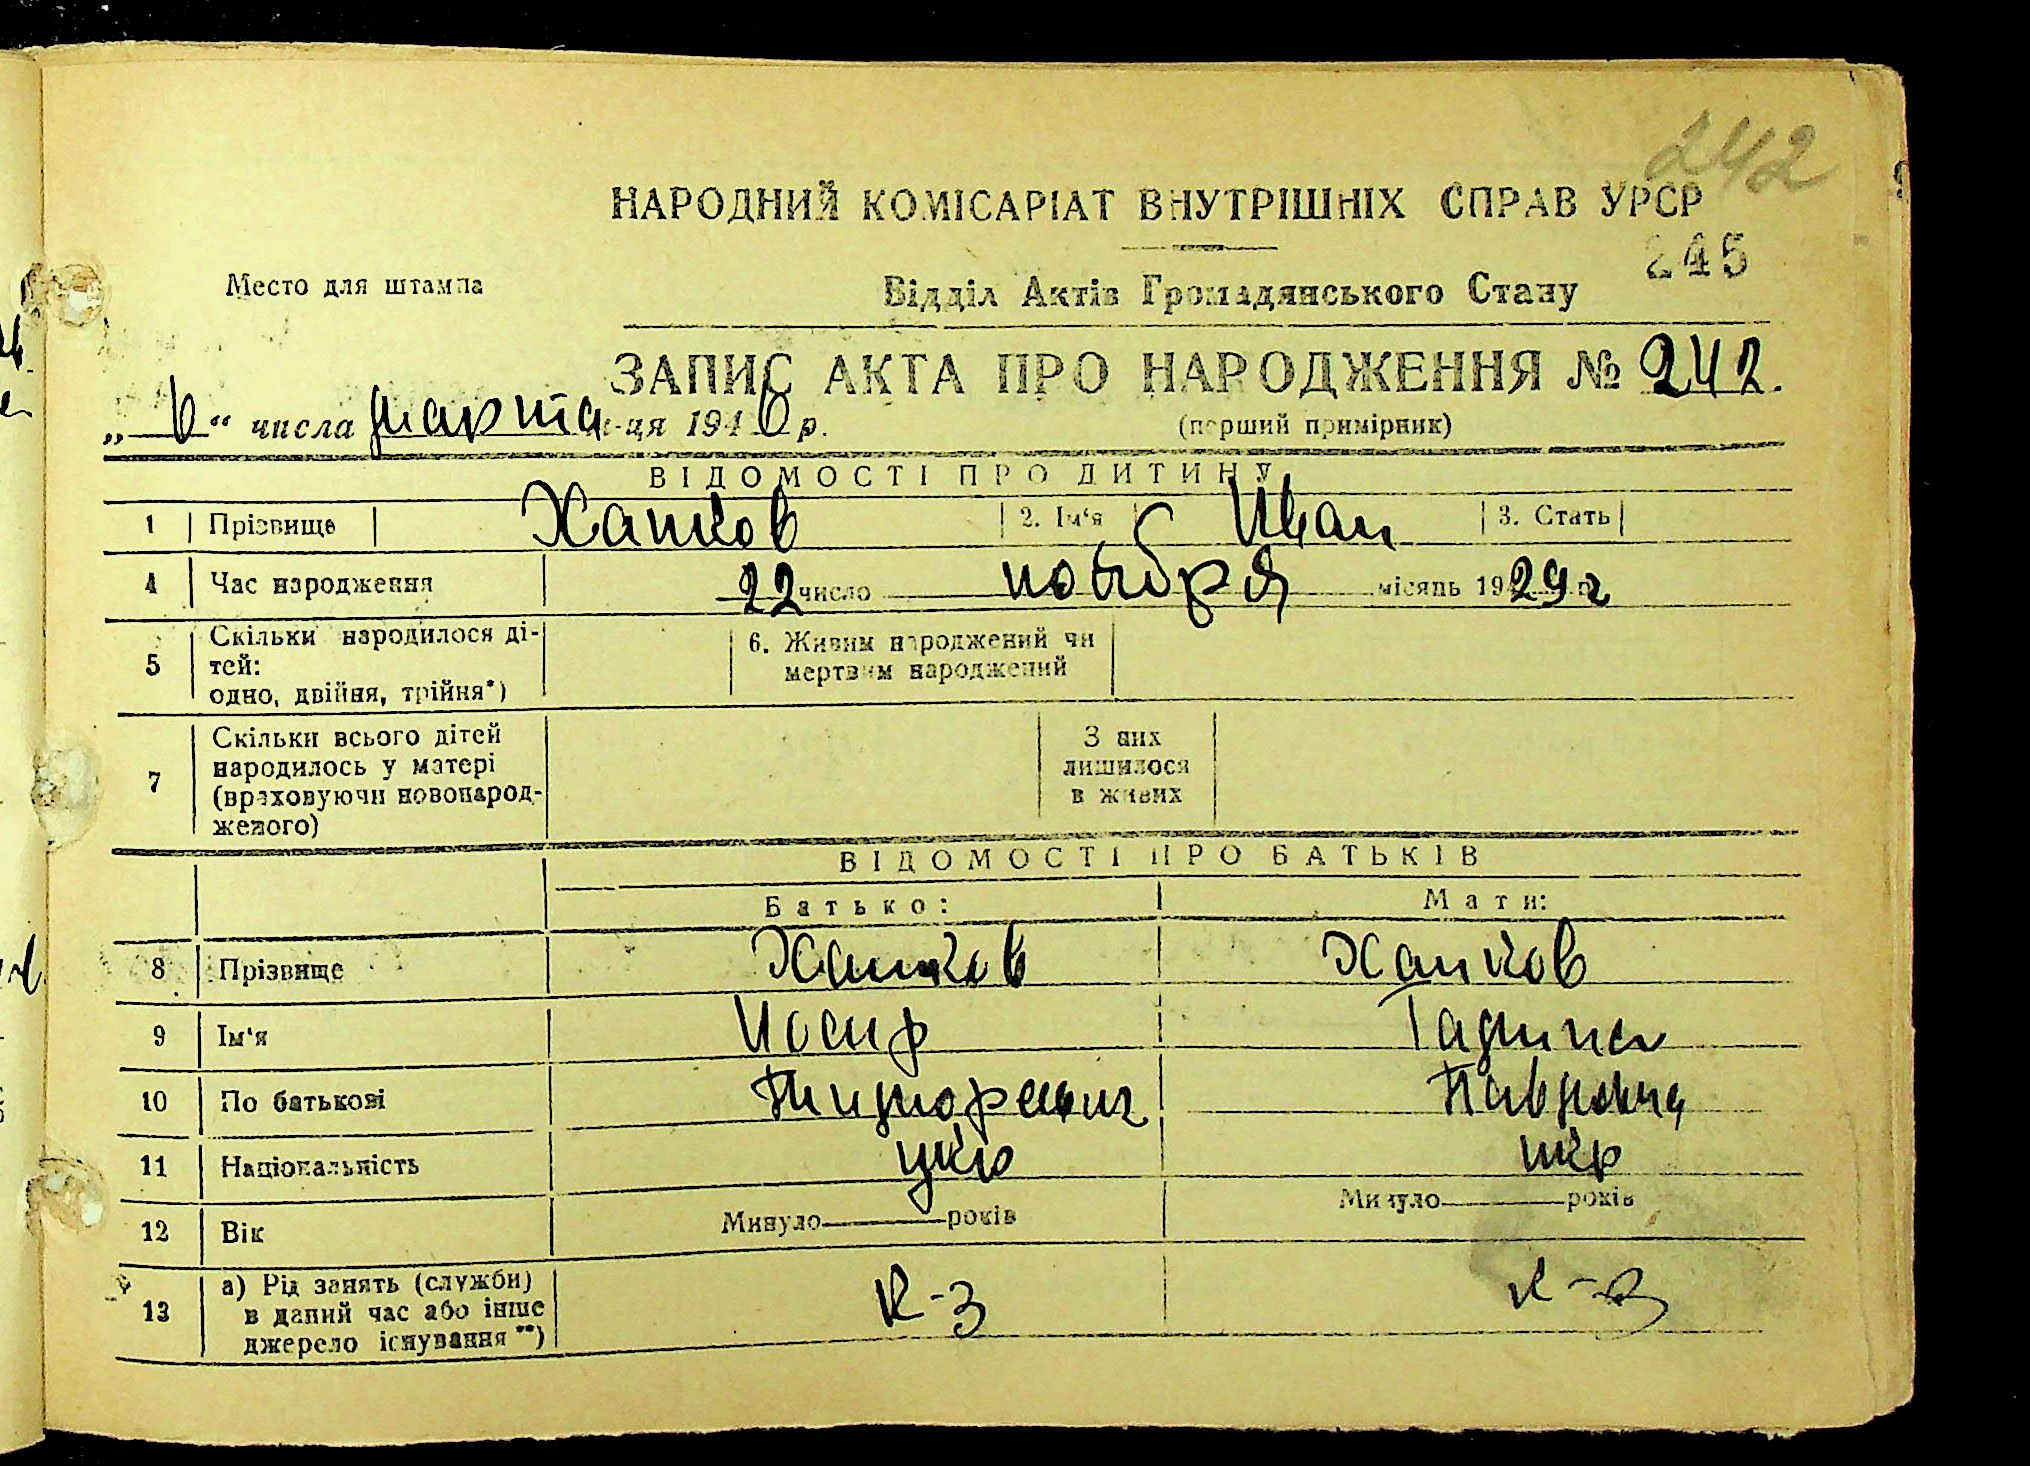 242
НАРОДНИЙ КОМІСАРІАТ ВНУТРІШНІХ СПРАВ УРСР
245
Место для штампа
Відділ Актів Громадянського Стану
ЗАПИС АКТА ПРО НАРОДЖЕННЯ № 242.
„6“ числа марта м-ця 1946 р.
(перший примірник)
ВІДОМОСТІ ПРО ДИТИНУ
1 Прізвище Хапков 2. Ім‘я Иван 3. Стать
4 Час народження 22 число ноября місяць 1929 г
5 Скільки народилося ді-
тей:
одно, двійня, трійня*)
6. Живим народжений чи
мертвим народжений
7 Скільки всього дітей
народилось у матері
(враховуючи новонарод-
женого)
З них
лишилося
в живих
ВІДОМОСТІ ПРО БАТЬКІВ
Батько: Мати:
8 Прізвище Хапков Хапков
9 Ім‘я Иосип
10 По батькові Павловна
11 Національність укр укр
12 Вік Минуло років Минуло років
13 а) Рід занять (служби)
в даний час або інше
джерело існування **)
к-з к-з